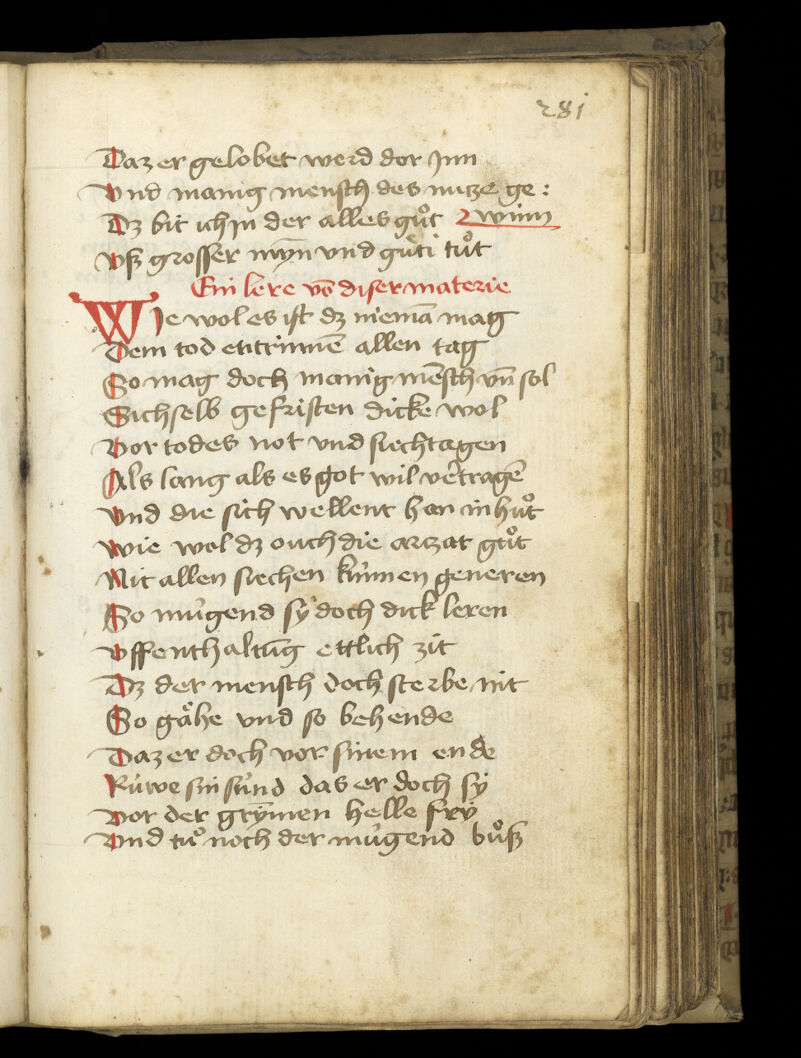 281
Daz er gelobet werd dor jnn
Vnd manig mensch des nutze ge:
Dz bit ich jn der alles guͦt zwinn
Vß grosser myn̄ vnd guͤti tuͦt
Ein lere vō diser materie
Wie wol es ist dz niemā mag
Dem tod enttrinnē allen tag
So mag doch manig mēsch vn̄ sol
Sich selb gefristen dicke wol
Vor todes not vnd siechtagen
Als lang als es got wil vertragē
Vnd die sich wellent han in huͦt
Wie wol dz ouch die arczat guͦt
Nit allen siechen kúmen generen
So múgend sÿ doch dick leren
Vffenthaltūg ettlich zit
Dz der mensch doch sterbe nit
So gaͤhe vnd so behende
Daz er doch vor sinem ende
Rúwe sin súnd das er doch sÿ
Vor der grÿmen helle frÿ
Vnd tuͦ noch der múgend buͦß